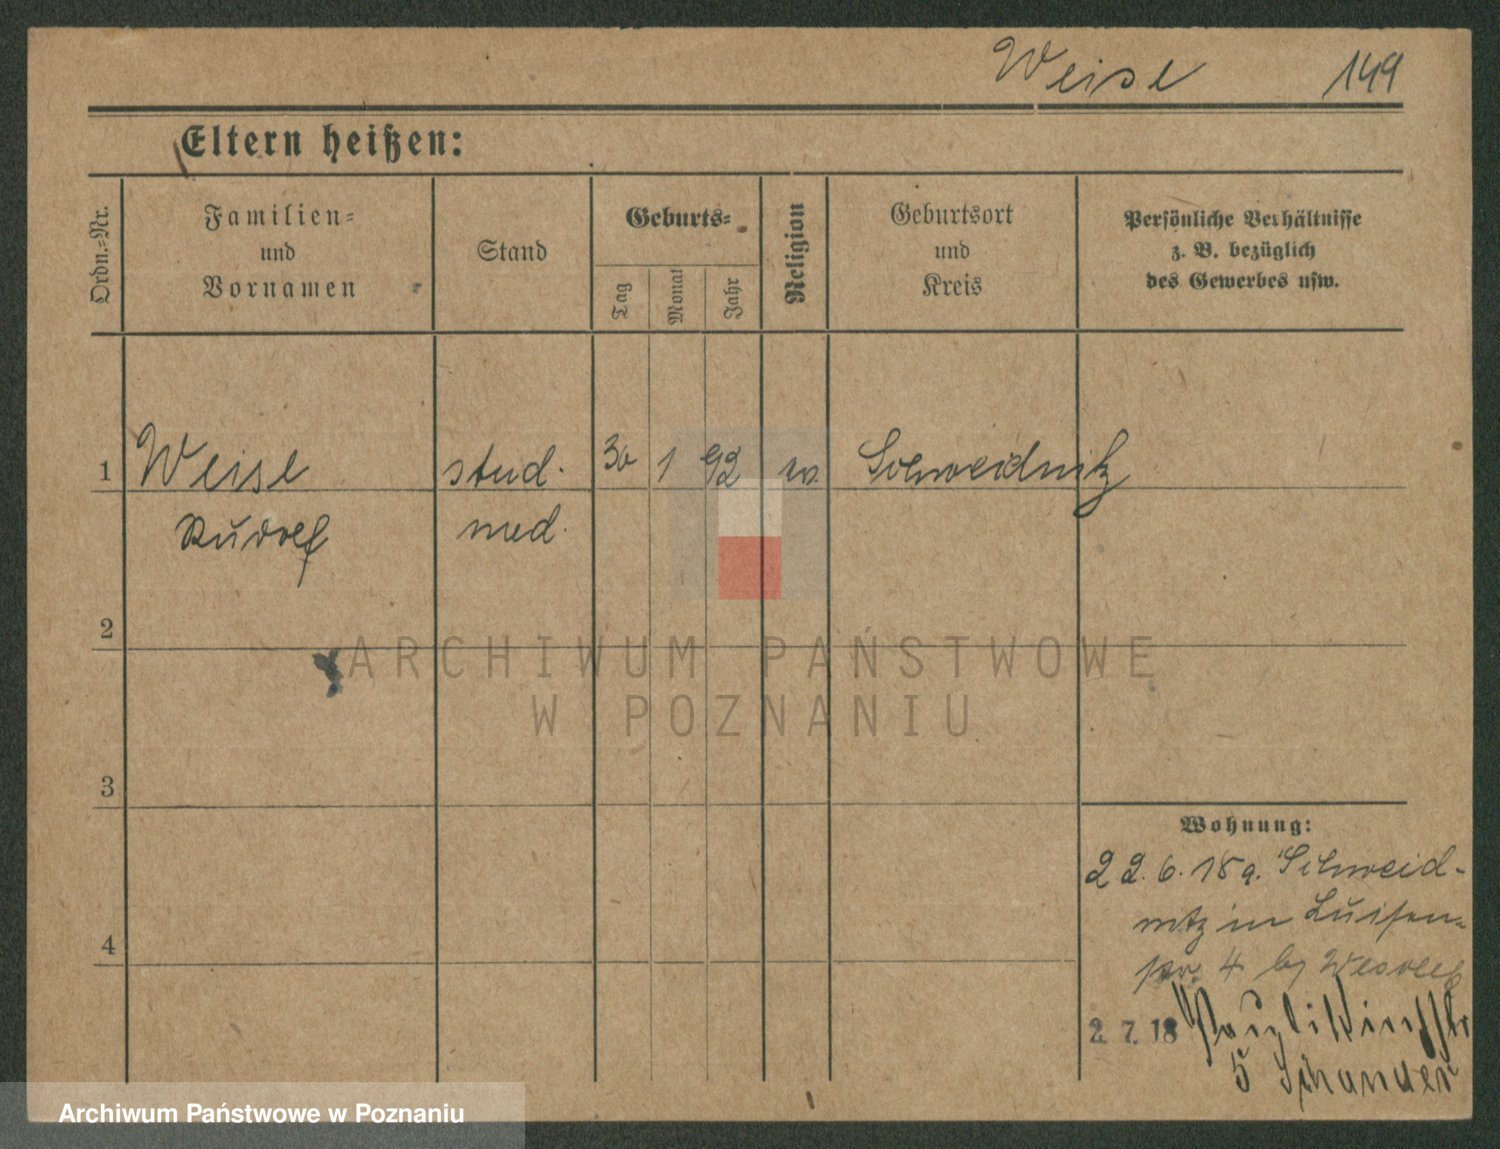 Weise 149
Eltern heißen:
Ordn.=Nr.
Familien=
und
Vornamen
Stand
Geburts=
Tag
Monat
Jahr
Religion
Geburtsort
und
Kreis
Persönliche Verhältnisse
z. B. bezüglich
des Gewerbes usw.
1 Weise stud. 30 1 92 Schweidnitz
Rudolf med.
2
3
4
Wohnung:
22. 6. 18 a. Schweid-
nitz in Luisen=
str. 4 by
2. 7. 18 Paulikirchstr
5 Schander
ARCHIWUM PAŃSTWOWE
W POZNANIU
Archiwum Państwowe w Poznaniu